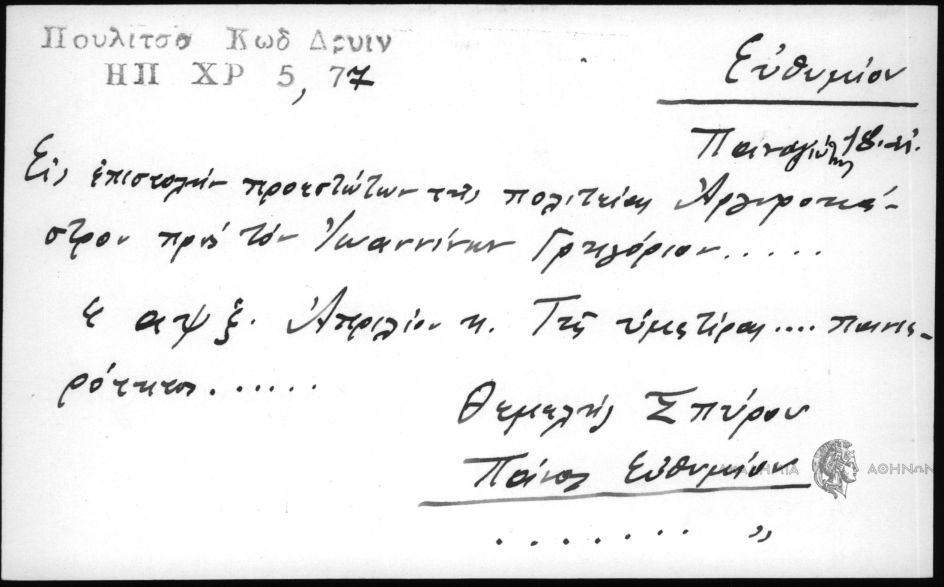 Πουλιτσα Κωδ Δρυιν
ΗΠ ΧΡ 5, 77
Εὐθυμίου
Παναγιώτης 18. αἰ.
Εἰς ἐπιστολὴν προεστώτων τῆς πολιτείας Ἀργυροκά-
στρου πρὸς τὸν Ἰωαννίνων Γρηγόριον.....
αψξ. Ἀπριλίου κ. Τῆς ὑμετέρας .... πανιε-
ρότητος......
Θεμελής Σπύρου
Πάνος Εὐθυμίου
. . . . . . . "
ΑΘΗΝΩΝ